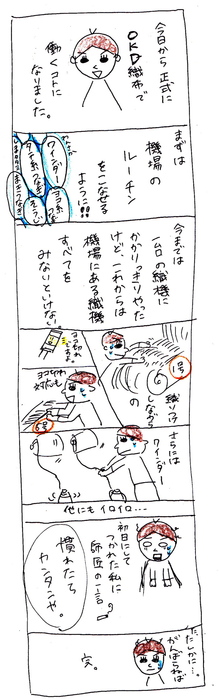 今日から正式に
OKD織布で
働くコトに
なりました。
まずは
機場の
ルーチン
をこなせる
ように!!
ワインダー
ヨコ糸
タテ糸つなぎ
そうじ
今までは
一ムロの織機に
かかりっきりやった
けど、これからは
機場にある織機
すべてを
みないといけない
1号
ヨコ切れ
ヨコ切れ
6号
織りつけ
しながら
の
さらには
ワインダー
他にもイロイロ…
初日にして
つかれた私に
師匠の一言
慣れたら
カンタンや。
たしかに…
がんばらねば
完。